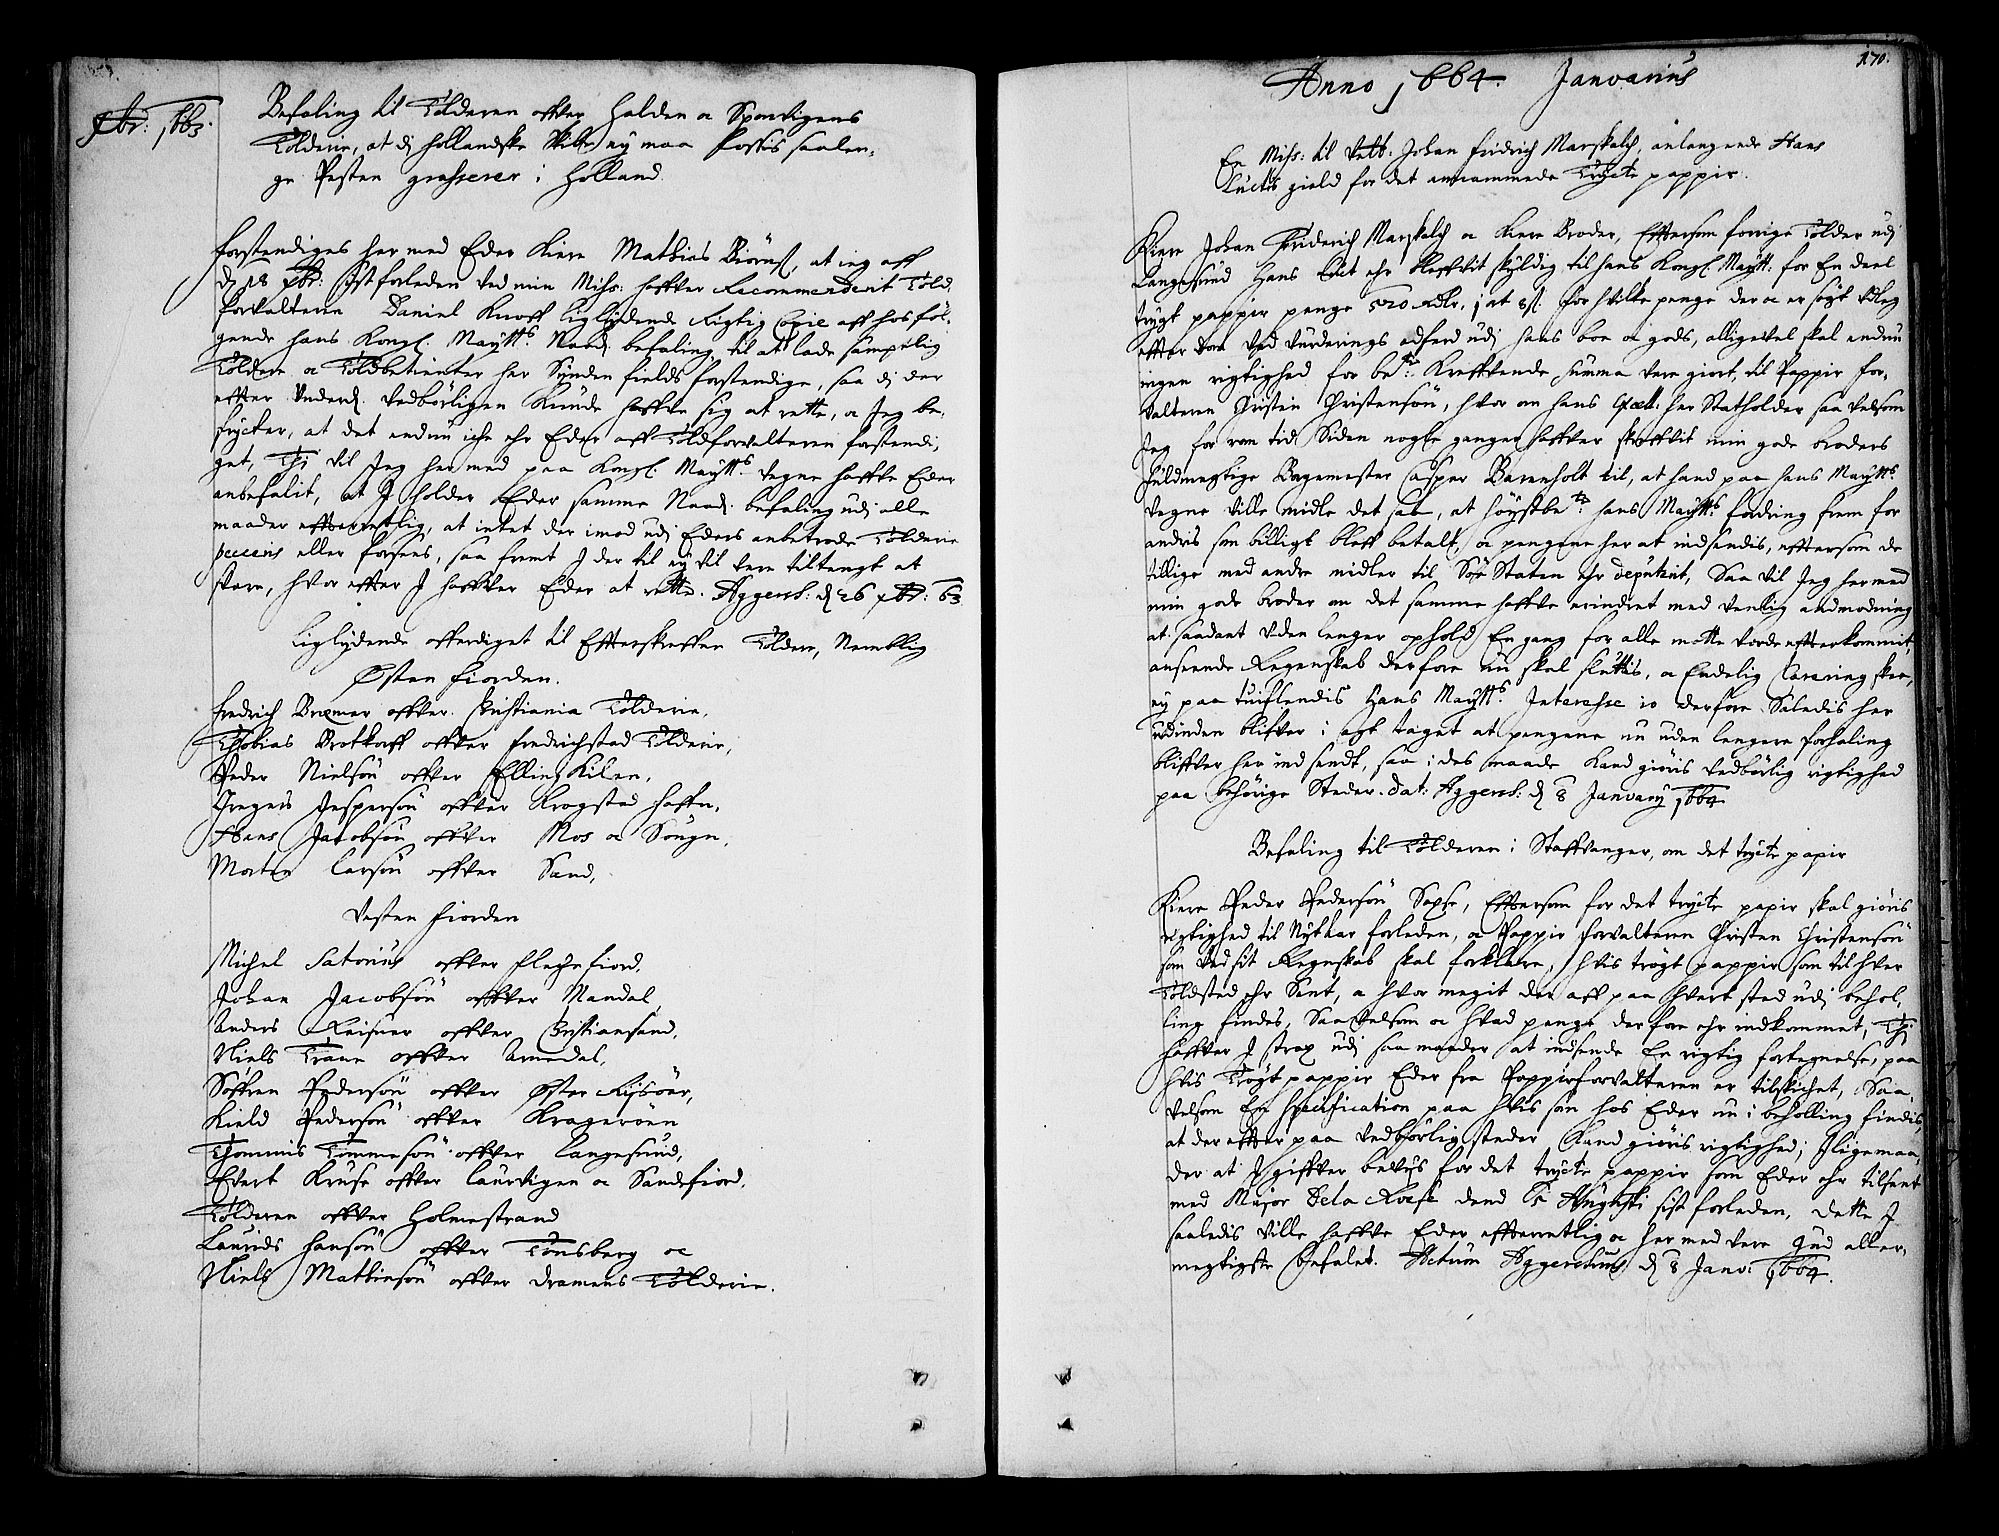 Xbr: 1663.
Befaling til Tolderen offver Halden oc Sponvigens
Tolderie, at di Hollandske Skibe ey maa Passis saalen-
ge Pesten grasserer i Holland.
Forstendiges her med Eder Kiere Mathias Biörnß, at ieg aff
d. 18 Xbr: sistforleden ved min Miss: haffver Recommenderit Told
forvalteren Daniel Knoff liglydende Rigtig Copie aff hosföl-
gende hans Kongl. Maytts. Naad. befaling til at lade sampelig
Toldere oc Toldbetienter her Synden fields forstendige, saa di der
effter Underd. vedbörligen kunde haffve sig at rette, oc Jeg be-
frycter, at det endnu iche ehr Eder aff Toldforvalteren forstendi-
get, Thi vil Jeg her med paa Kongl. Maytts vegne haffve Eder
anbefalit, at I holder Eder samme Naad. befaling udi alle
maader efterretlig, at intet der imod udi Eders anbetrode Tolderie
peceris eller forsees, saa fremt I der til ey vil vere tiltengt at
svare, hvor effter I haffver Eder at rette. Aggersh: d. 26 Xbr: 63
Liglydende afferdiget til Effterskreffne Toldere, Nemblig
Østen Fiorden.
Fredrich Bremer offver Christiania Tolderie,
Thobias Brotkorff offver Fredrichstad Tolderie,
Peder Nielsön offver Ellingkilen,
Gregers Jespersön offver Krogstad haffn,
Hans Jacobsön offver Mos oc Sougn,
Morten Larsön offver Sand,
Vesten Fiorden
Michel Satorius offver Flechefiord,
Johan Jacobsön offver Mandal,
Anders Reisner offver Christiansand,
Niels Trane offver Arnedal,
Söffren Pedersön offver Øster Rysöer,
Kield Pedersön offver Kragerøen
Thommis Tommesön offver Langesund,
Evert Kruse offver Laurvigen oc Sandefiord,
Tolderen offver Holmestrand
Laurids Hansön offver Tonsberg oc
Niels Mathiesön offver Dramens Tolderie.
170.
Anno 1664. Janvarius
En Miss: til Velb. Johan Fridrich Marskalch, anlangende Hans
Luctis gield for det annammede Trycte pappir.
Kiere Johan Friderich Marskalch oc Kiere Broder, Efftersom forrige Tolder udi
Langesund Hans Luct ehr bleffvit skyldig til hans Kongl. Maytt. for En deel
trygt pappir penge 520 Rdlr. 1 ort 8 s. for hvilke penge der oc er sögt Udleg
effter dom ved vurderings adferd udi hans boe oc gods, alligevel skal endnu
ingen rigtighed for bete. Kreffvende summa vere giort, til Pappir for-
valteren Christen Christensön, hvor om hans Excell. her Statholder saa velsom
Jeg for rom tid Siden nogle ganger haffver skreffvit min gode broders
fuldmegtige Bergemester Casper Barenholt til, at hand paa hans Maytts
vegne ville midle det saa, at höystbete. hans Maytts fordring frem for
andris som billigt bleff betalt, oc pengene her at indsendis, efftersom de
tillige med andre midler til Söe Staten ehr deputerit, Saa vil Jeg her med
min gode broder om det samme haffve erindret med venlig anmodning
at saadant uden lenger ophold En gang for alle motte vorde effterkommit,
anseende Regenskab derfore nu skal sluttis, oc Endelig Clarering skee,
ey paa tuifflendis Hans Maytts. Interesse io derfore Saledis her
udinden blifver i agt taget at pengene nu uden lengere forhaling
bliffver her ind sendt, saa i des maade kand giöris vedbörlig rigtighed
paa behörige Steder. Dat: Aggersh: d. 8 Janvary 1664
Befaling til Tolderen i Staffvanger, om det trycte papir
Kiere Peder Pedersön Saxse, Efftersom for det trycte papir skal giöris
rigtighed til Nytaar forleden, oc Pappir forvalteren Christen Christensön
som ved sit Regnskab skal forklare, hvis trygt pappir som til hver
Toldsted ehr Sent, oc hvor megit der aff paa hvert sted udi behol-
ling findes, Saavelsom oc hvad penge derfore ehr indkommet, Thi
haffver I strax udi saa maader at indsende En rigtig fortegnelse, paa
hvis Trygt pappir Eder fra Pappirforvalteren er tilskichet, Saa
velsom En specification paa hvis som hos Eder nu i beholling findis,
at der effter paa vedbörlig steder kand giöris rigtighed; Iligemaa-
der at I giffver beviis for det trycte pappir som Eder ehr tilsent
med Major Dela Roese dend 15 Augusti sist forleden, dette I
saaledis ville haffve Eder effterretlig oc her med vere Gud aller-
megtigste befalet. Actum Aggershuus d. 8 Janv: 1664.